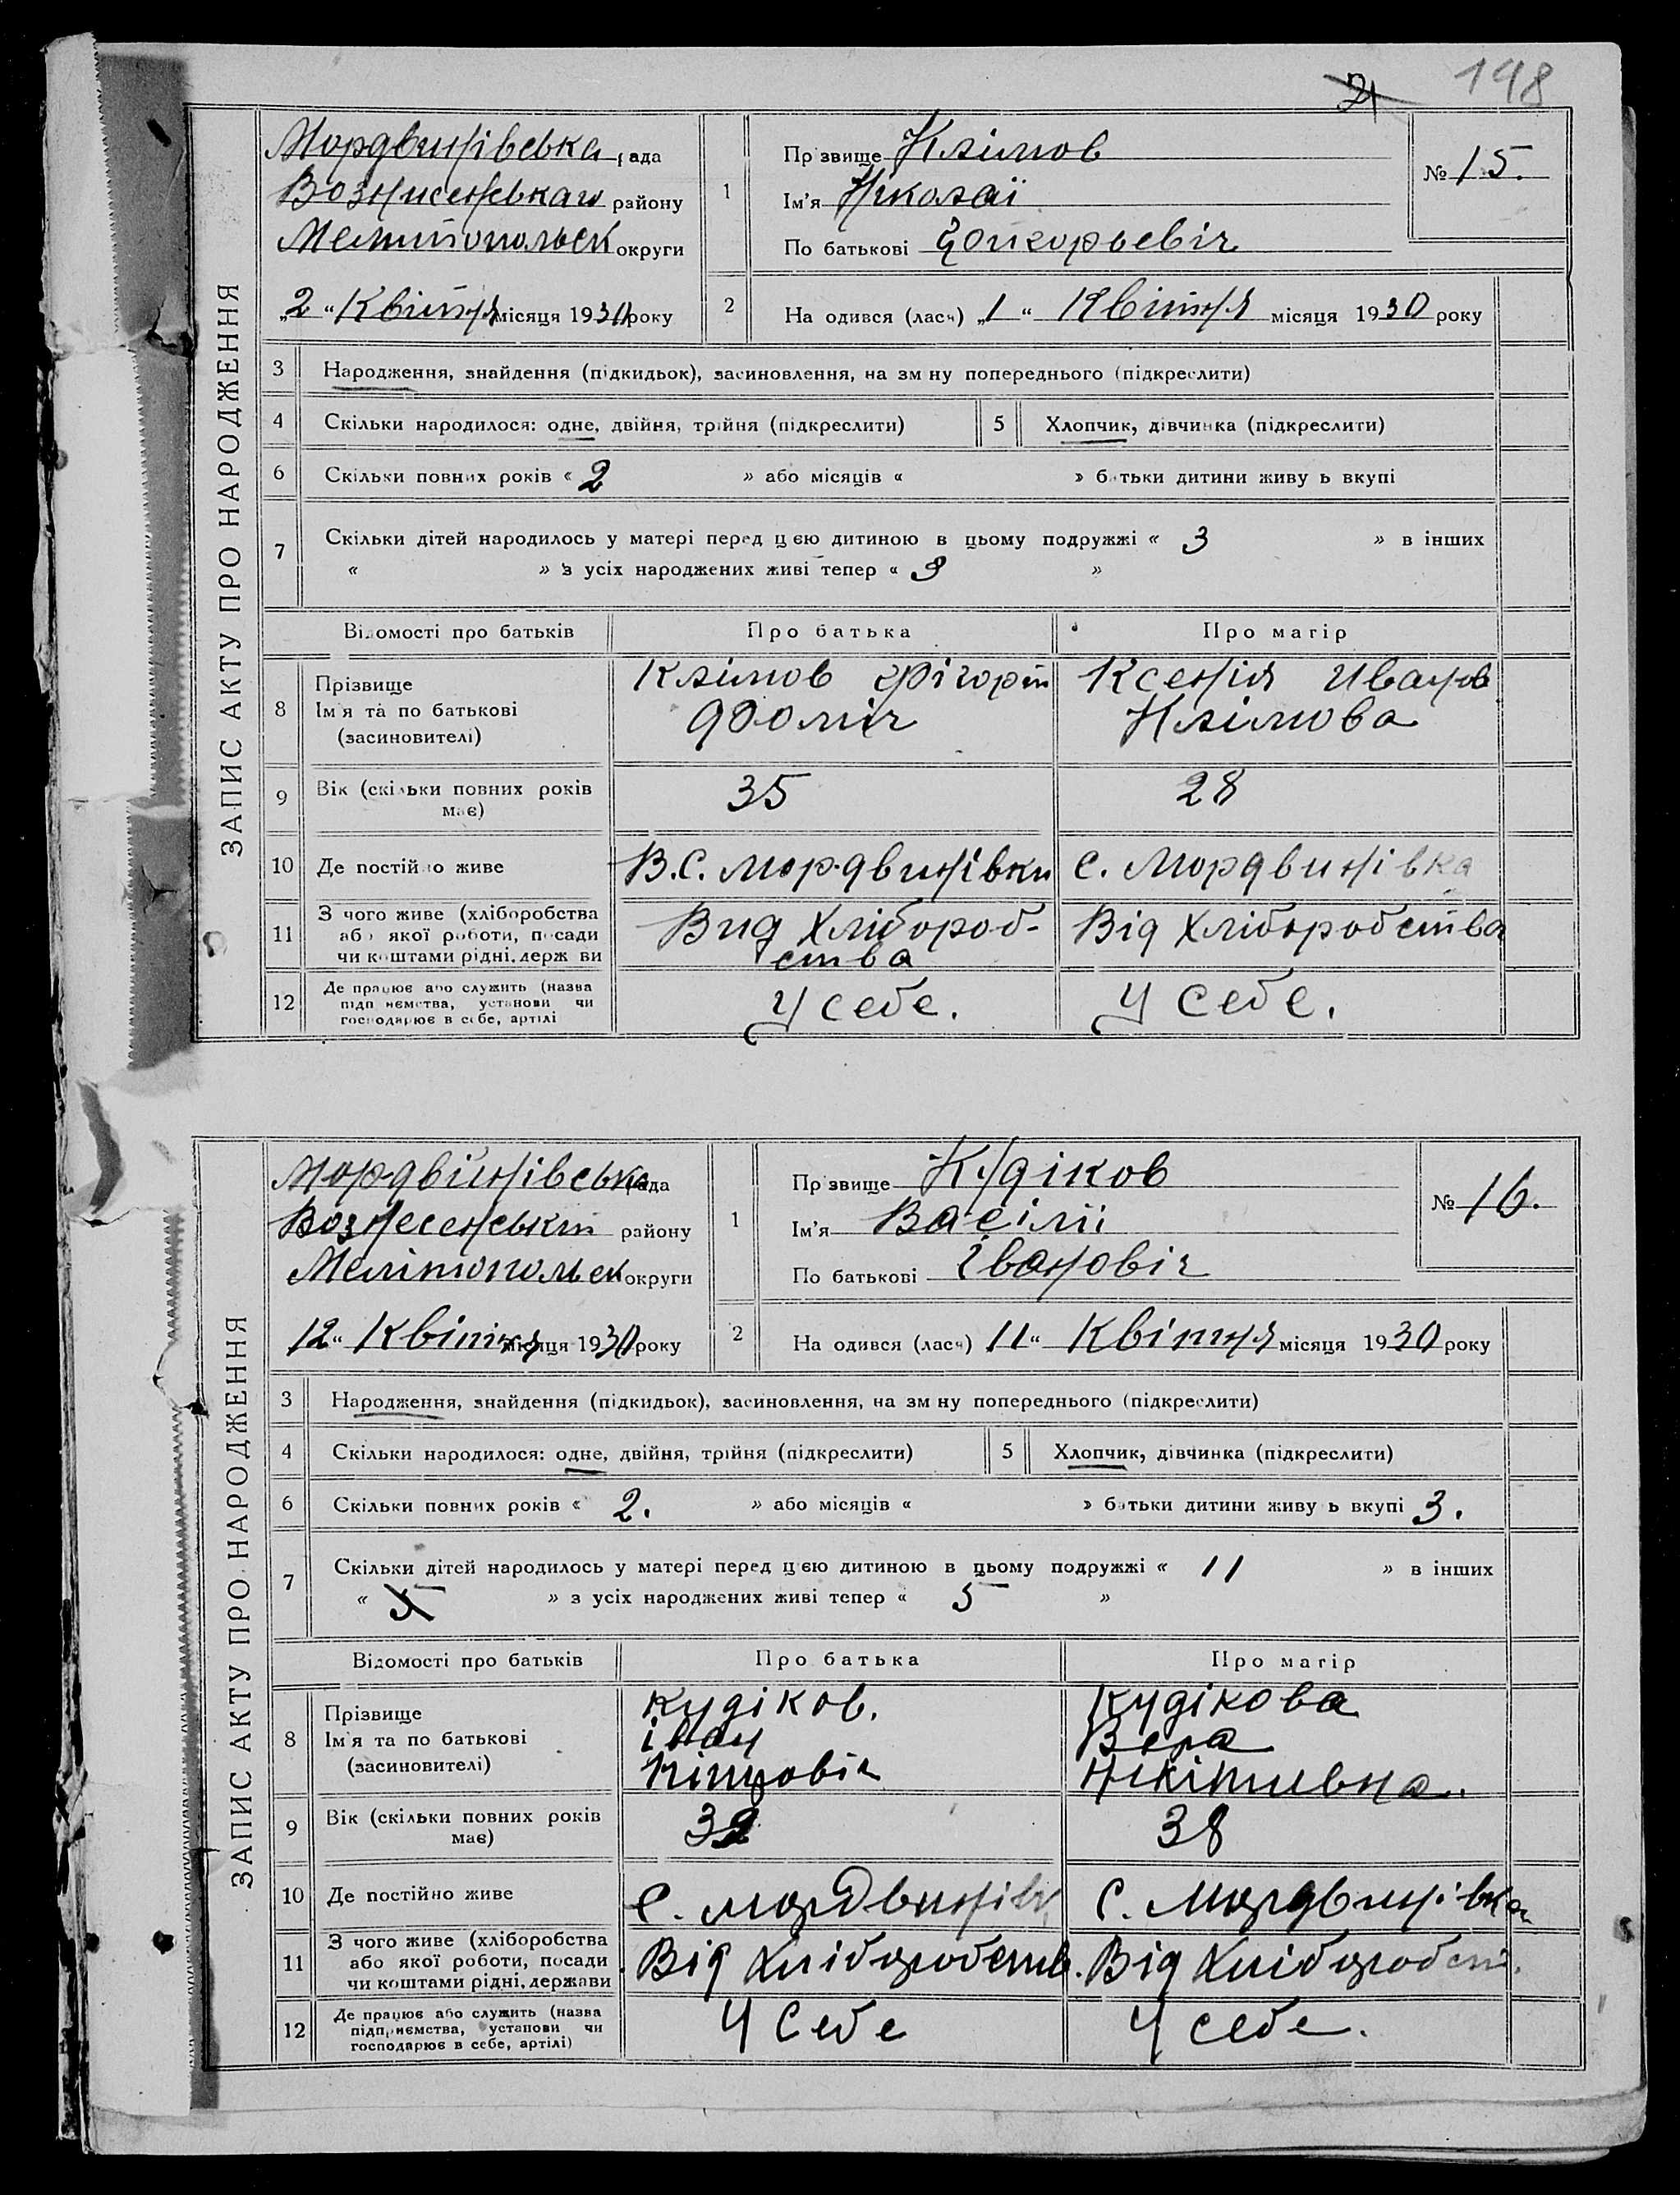 21 198
ЗАПИС АКТУ ПРО НАРОДЖЕННЯ
Мордвинівська рада
Вознисенськаю району
Мелитопольск округи
„2“ Квітня місяця 1930 року
1
Пр звище Клімов
Ім'я Николаї
По батькові
№ 15.
2
На одився (лась) „1“ Квітня місяця 1930 року
3 Народження, знайдення (підкидьок), засиновлення, на зм ну попереднього (підкреслити)
4 Скільки народилося: одне, двійня, трійня (підкреслити) 5 Хлопчик, дівчинка (підкреслити)
6 Скільки повних років « 2 » або місяців « » батьки дитини живу ь вкупі
7 Скільки дітей народилось у матері перед цєю дитиною в цьому подружжі « 3 » в інших
« » з усіх народжених живі тепер « 3 »
Відомості про батьків Про батька Про матір
8 Прізвище
Ім'я та по батькові
(засиновителі)
Клімов
Ксенія Иванов
Клімова
9 Вік (скільки повних років
має)
35 28
10 Де постійно живе В.С. Мордвинівки С. Мордвинівка
11 З чого живе (хліборобства
або якої роботи, посади
чи коштами рідні, держ ви
Вид Хлібороб-
ства
Від Хліборобства
12 Де працює або служить (назва
підп иємства, установи чи
господарює в себе, артілі
У себе. У себе.
ЗАПИС АКТУ ПРО НАРОДЖЕННЯ
Мордвінівська рада
Вознесенський району
Мелітопольск округи
12“ Квітня місяця 1930 року
1
Пр звище Кудіков
Ім'я Васілії
По батькові Івановіч
№ 16.
2
На одився (лась) 11“ Квітня місяця 1930 року
3 Народження, знайдення (підкидьок), засиновлення, на зм ну попереднього (підкреслити)
4 Скільки народилося: одне, двійня, трійня (підкреслити) 5 Хлопчик, дівчинка (підкреслити)
6 Скільки повних років « 2. » або місяців « » батьки дитини живу ь вкупі 3.
7 Скільки дітей народилось у матері перед цєю дитиною в цьому подружжі « 11 » в інших
« 5 » з усіх народжених живі тепер « 5 »
Відомості про батьків Про батька Про матір
8 Прізвище
Ім'я та по батькові
(засиновителі)
Кудіков.
Іван
Кудікова
Вера
Нікітивна.
9 Вік (скільки повних років
має)
38
10 Де постійно живе С. Мордвинівк С. Мордвинівка
11 З чого живе (хліборобства
або якої роботи, посади
чи коштами рідні, держави
Від Хліборобств. Від Хліборобст.
12 Де працює або служить (назва
підприємства, установи чи
господарює в себе, артілі)
У Себе У себе.